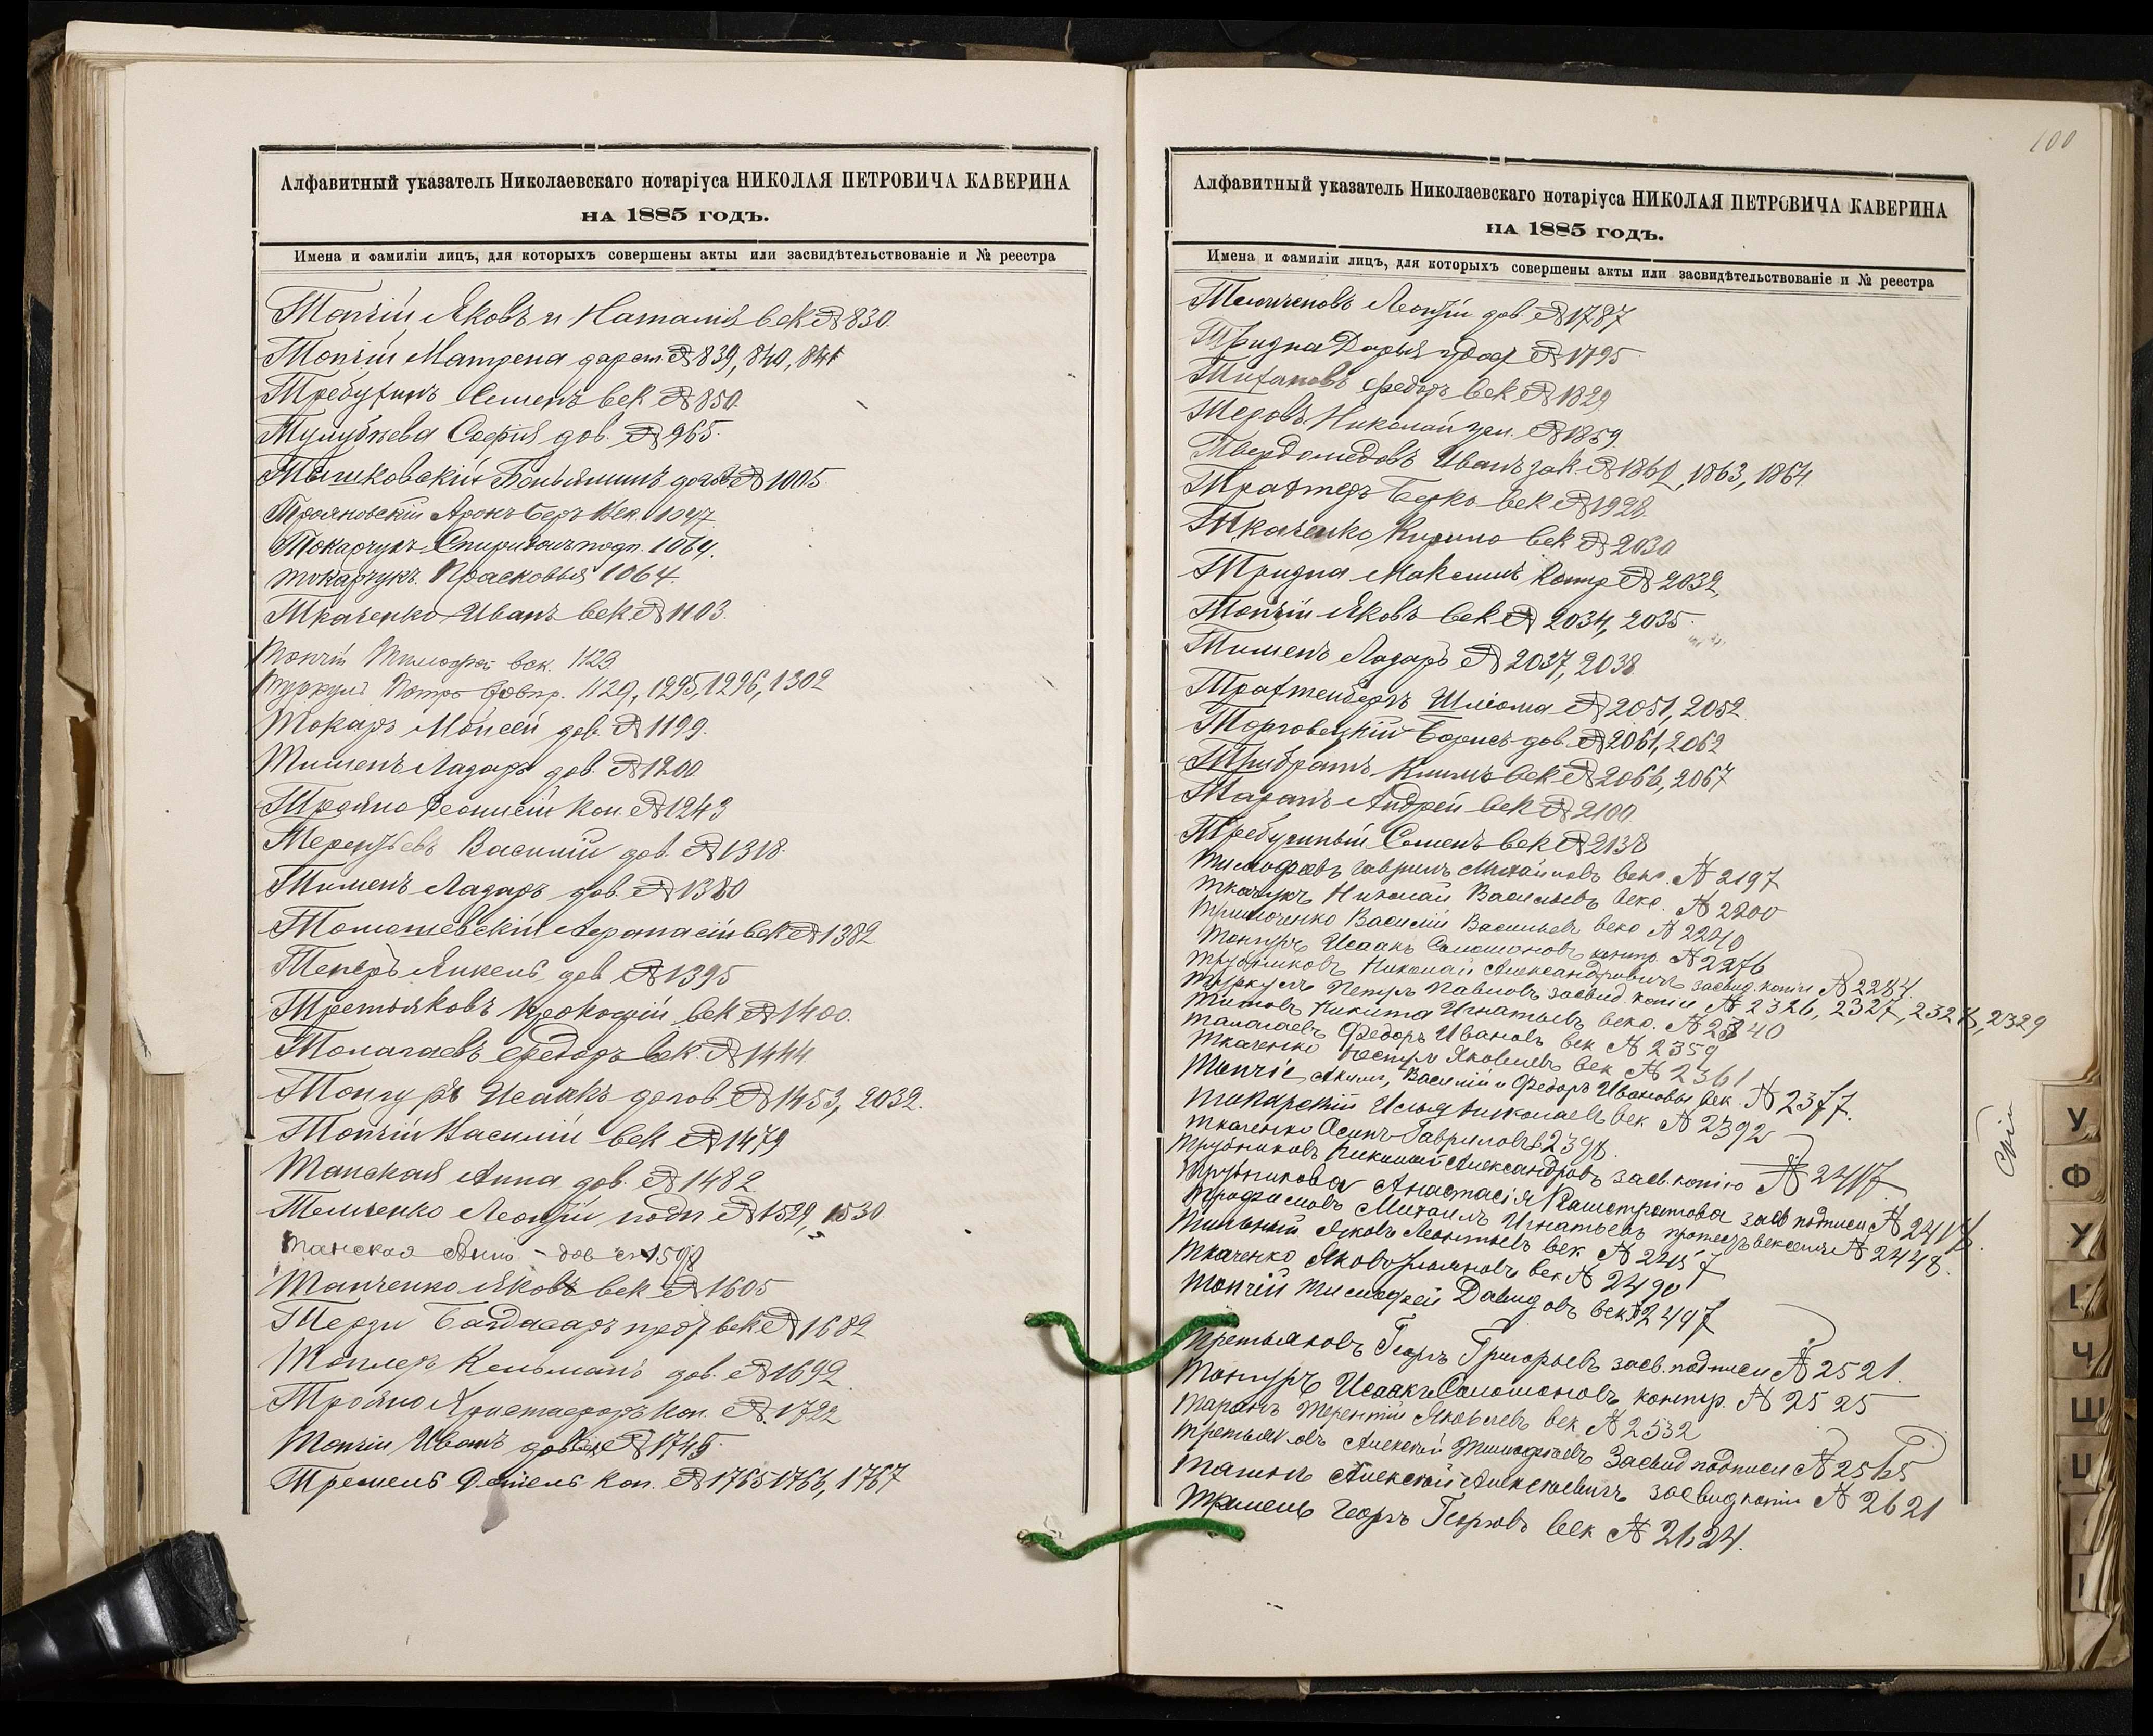 Алфавитный указатель Николаевскаго нотаріуса НИКОЛАЯ ПЕТРОВИЧА КАВЕРИНА
НА 1885 ГОДЪ.
Имена и фамиліи лицъ, для которыхъ совершены акты или засвидѣтельствованіе и № реестра
Топчій Яковъ и Наталія век № 830.
Топчій Матрена дар ст № 839, 840, 841
Требухинъ Семенъ век № 850.
София дов. № 965.
Тышковскій Беньяминъ догов № 1005.
Трояновскій Аронъ Беръ век. 1047
Токарчукъ Спиридонъ подп. 1064.
Токарчукъ Прасковья 1064.
Ткаченко Иванъ век № 1103.
Топчій Тимофей век. 1123
Туркулъ Петръ 1129, 1295, 1296, 1302
Токарь Мойсей дов. № 1199.
Тишенъ Лазарь дов. № 1200
Трояно кон. № 1243
Терентьевъ Василий дов. № 1318.
Тишенъ Лазарь дов. № 1380
Томашевскій Афанасій век № 1382
Теперъ Янкель дов № 1395
Третьяковъ Прокофій век № 1400.
Толагаевъ Федоръ век. № 1444
Тонгуръ Исаакъ догов № 1453, 2032.
Топчій Василій век № 1479
Танская Анна дов. № 1482
Темченко Леонтій подп № 1529, 1530
Танская Анна - дов 1598
Танченко Яковъ век № 1605
Терзи Багдасаръ век № 1682
Топлеръ Кельманъ дов. № 1692
Трояно Христофоръ кон. № 1722
Топчій Иванъ № 1745.
Тремель Даніель кон. № 1765 1766, 1767
100
Алфавитный указатель Николаевскаго нотаріуса НИКОЛАЯ ПЕТРОВИЧА КАВЕРИНА
НА 1885 ГОДЪ.
Имена и фамиліи лицъ, для которыхъ совершены акты или засвидѣтельствованіе и № реестра
Леонтій дов № 1787
Тридна Дарья № 1795
Титановъ Федоръ век № 1829
Теровъ Николай № 1859
Твердомедовъ Иванъ зак. № 1862, 1863, 1864
Трахтеръ Берко век № 1928.
Ткаченко Кирило век № 2030
Тридна Максимъ контр № 2032
Топчій Яковъ век № 2034, 2035
Тишенъ Лазарь № 2037, 2038
Трахтенбергъ Шліома № 2051, 2052
Торговецкій Борисъ дов. № 2061, 2062
Трибратъ Климъ век № 2066, 2067
Таранъ Андрей век № 2100.
Требушный Семенъ век № 2138
Тимофѣевъ Гаврилъ Михайловъ векс. № 2197
Ткачукъ Николай Васильевъ векс. № 2200
Василій Васильевъ векс № 2240
Тонгуръ Исаакъ Соломоновъ контр. № 2276
Трубниковъ Николай Александровичъ засвид. копіи № 2284.
Туркулъ Петръ Павловъ засвид. копіи № 2326, 2327, 2328, 2329
Титовъ Никита Игнатьевъ векс. № 2340
Талагаевъ Федоръ Ивановъ век № 2359
Ткаченко Нестеръ Яковлевъ век № 2361
Топчіе Акимъ, Василій и Федоръ Ивановы век. № 2377.
Токарскій Илья Николаевъ век № 2392
Ткаченко Осипъ Гавриловъ 2398.
Трубниковъ Николай Александровъ засв. копію № 2417.
Трубникова Анастасія Калистратова засв подписи № 2418.
Трофимовъ Михаилъ Игнатьевъ протестъ векселя № 2448.
Яковъ Леонтьевъ век № 2457
Ткаченко Яковъ век № 2490
Топчій Тимофей Давидовъ век № 2497
Третьяковъ Георгъ Григорьевъ засв. подписи № 2521.
Тонгуръ Исаакъ Соломоновъ контр. № 2525
Таранъ Терентій Яковлевъ век № 2532
Третьяковъ Алексѣй Тимофѣевъ Засвид подписи № 2565
Алексѣй Алексѣевичъ засвид копіи № 2621
Тремель Георгъ Георговъ век № 2624.
У
Ф
У
Ч
Ш